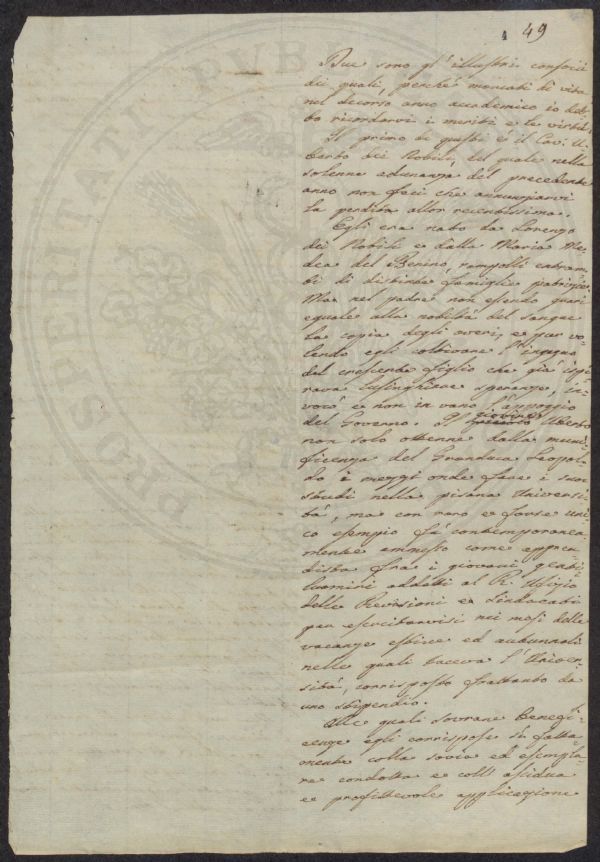 4 49
Due sono gl'illustri consocii
dei quali, perchè mancati di vita
nel decorso anno accademico io deb-
bo ricordarvi i meriti e le virtù.
Il primo di questi è il Cav. U-
berto dei Nobili, del quale nella
solenne adunanza del precedente
anno non feci che annunziarvi
la perdita allor recentissima.
Egli era nato da Lorenzo
dei Nobili e dalla Maria Me-
dea del Benino, rampolli entram-
bi di distinte famiglie patrizie.
Ma nel padre non essendo guari
eguale alla nobiltà del sangue
la copia degli averi, e pur vo-
lendo egli coltivare l'ingegno
del crescente figlio che già ispi-
rava lusinghiere speranze, in-
vocò e non in vano l'appoggio
del Governo. Il giovine Uberto
non solo ottenne dalla muni-
ficenza del Granduca Leopol-
do i mezzi onde fare i suoi
studi nella pisana Universi-
tà, ma con raro e forse uni-
co esempio fù contemporanea-
mente ammesso come appren-
dista fra i giovani gentil-
uomini addetti al R. Ufizio
delle Revisioni e Sindacati
per esercitarvisi nei mesi delle
vacanze estive ed autunnali
nelle quali taceva l'Univer-
sità, corrisposto frattanto da
uno stipendio.
Alle quali sovrane benefi-
cenze egli corrispose sì fatta-
mente colla savia ed esempla-
re condotta e coll'assidua
e profittevole applicazione
PROSPERITATI PVB